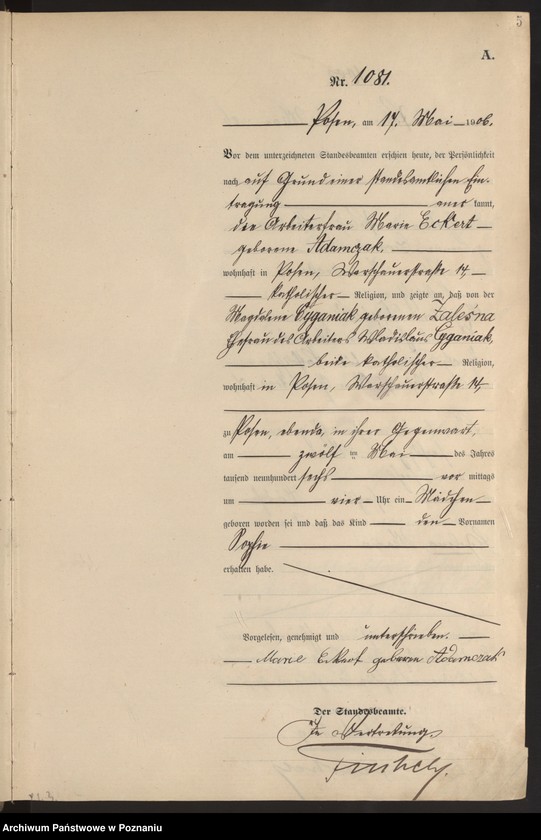 5
A.
Nr. 1081.
Posen, am 17. Mai 1906.
Vor dem unterzeichneten Standesbeamten erschien heute, der Persönlichkeit
nach auf Grund einer standesamtlichen Ein-
tragung aner kannt,
die Arbeiterfrau Marie Eckert
geborene Adamczak,
wohnhaft in Posen, Warschauerstraße 14
katholischer Religion, und zeigte an, daß von der
Magdalene Cyganiak geborenen Zalesna
Ehefrau des Arbeiters Wladislaus Cyganiak,
beide katholischer Religion,
wohnhaft in Posen, Warschauerstraße 14,
zu Posen, ebenda, in ihrer Gegenwart,
am zwölf ten Mai des Jahres
tausend neunhundert sechs vor mittags
um vier Uhr ein Mädchen
geboren worden sei und daß das Kind den Vornamen
Sophie
erhalten habe.
Vorgelesen, genehmigt und unterschrieben.
Marie Eckert geboren Adamczak
Der Standesbeamte.
In Vertretung
Archiwum Państwowe w Poznaniu